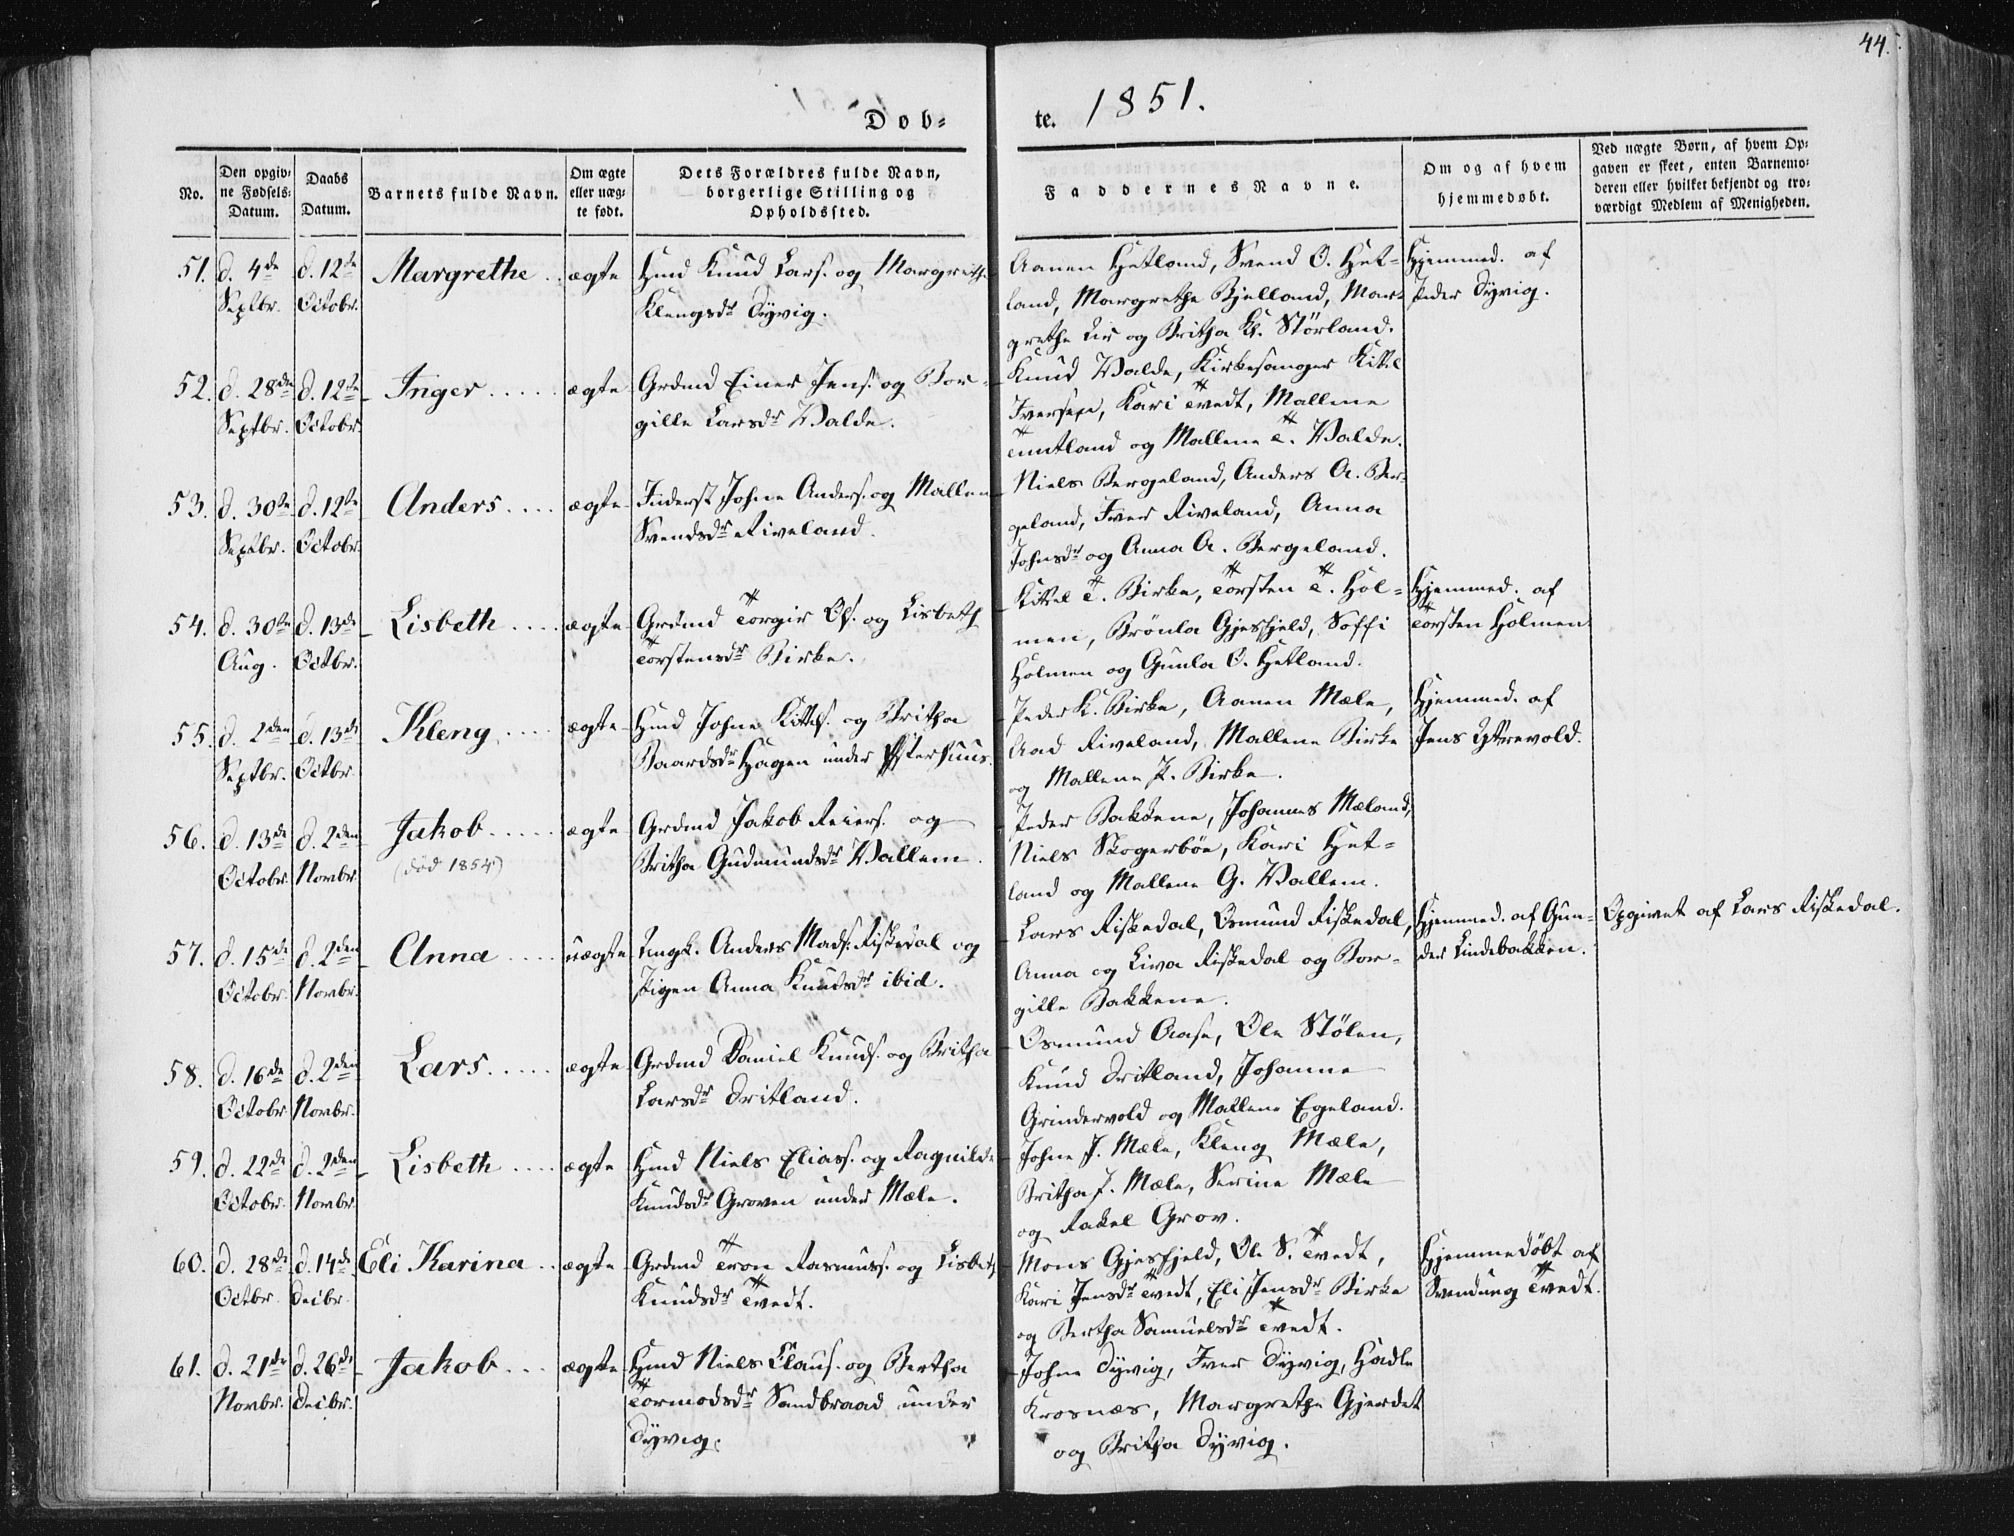 44.
Døb=
te. 1851.
No.
Den opgiv=
ne Fødsels=
Datum.
Daabs
Datum.
Barnets fulde Navn.
Om ægte
eller uæg=
te født.
Dets Forældres fulde Navn,
borgerlige Stilling og
Opholdssted.
Faddernes Navne.
Om og af hvem
hjemmedøbt.
Ved uægte Børn, af hvem Op=
gaven er skeet, enten Barnemo=
deren eller hvilket bekjendt og tro=
værdigt Medlem af Menigheden.
51. d. 4de Septbr. d. 12te Octobr. Margrethe .. ægte
Hmd Knud Lars. og Margrethe
Klengsdr Dyvig.
Aanen Hetland, Svend O. Het=
land, Margrethe Bjelland, Mar=
grethe Lie og Britha Kl. Störland.
Hjemmed. af
Peder Dyvig.
52. d. 28de Septbr. d. 12te Octobr. Inger ..... ægte
Grdmd Einer Jens. og Bor=
gille Larsdr Valde.
Knud Valde, Kirkesanger Kittel
Iversen, Kari Tvedt, Mallene
Tuntland og Mallene T. Valde.
53. d. 30te Septbr. d. 12te Octobr. Anders .... ægte
Inderst Johne Anders. og Mallene
Svendsdr Riveland.
Niels Bergeland, Anders A. Ber=
geland, Iver Riveland, Anna
Johnsdr og Anna A. Bergeland.
54. d. 30te Aug. d. 13de Octbr. Lisbeth .... ægte
Grdmd Torgir Ol. og Lisbeth
Torstensdr Birke.
Kittel T. Birke, Torsten T. Hol=
men, Brönla Gjesfjeld, Soffi
Holmen og Gunla O. Hetland.
Hjemmed. af
Torsten Holmen
55. d. 2den Septbr. d. 13de Octbr. Kleng .... ægte
Hmd Johne Kittels. og Britha
Baardsdr Hagen under Østerhuus.
Peder K. Birke, Aanen Mæle,
Aad Riveland, Mallene Birke
og Mallene P. Birke.
Hjemmed. af
Jens Ytrevold.
56. d. 13de Octobr. d. 2den Novbr. Jakob ..... ægte
(død 1854)
Grdmd Jakob Reiers. og
Britha Gudmundsdr Vallem.
Peder Bakkene, Johannes Mæland,
Niels Skogerböe, Kari Het=
land og Mallene G. Vallem.
57. d. 15de Octobr. d. 2den Novbr. Anna .... uægte
Ungk. Anders Mads. Riskedal og
Pigen Anna Knudsdr ibid.
Lars Riskedal, Osmund Riskedal,
Anna og Liva Riskedal og Bor=
gille Bakkene.
Hjemmed. af Gun=
der Lindebakken.
Opgivet af Lars Riskedal.
58. d. 16de Octobr d. 2den Novbr. Lars ..... ægte
Grdmd Daniel Knuds. og Britha
Larsdr Dritland.
Osmund Aase, Ole Stølen,
Knud Dritland, Johanne
Grindevold og Mallene Egeland.
59. d. 22de Octobr. d. 2den Novbr. Lisbeth .... ægte
Hmd Niels Elias. og Ragnilde
Knudsdr Groven under Mæle.
Johne J. Mæle, Kleng Mæle,
Britha P. Mæle, Serine Mæle
og Rakel Grov.
60. d. 28de Octbr. d. 14de Decbr. Eli Karina .. ægte
Grdmd Tron Rasmuss. og Lisbeth
Knudsdr Tvedt.
Mons Gjesfjeld, Ole S. Tvedt,
Kari Jensdr Tvedt, Eli Jensdr Birke
og Bertha Samuelsdr Tvedt.
Hjemmedøbt af
Svendung Tvedt.
61. d. 21de Novbr. d. 26de Decbr. Jakob ... ægte
Hmd Niels Claus. og Bertha
Tormodsdr Sandbraad under
Dyvig.
Johne Dyvig, Iver Dyvig, Hadle
Krosnæs, Margrethe Gjerdet
og Britha Dyvig.